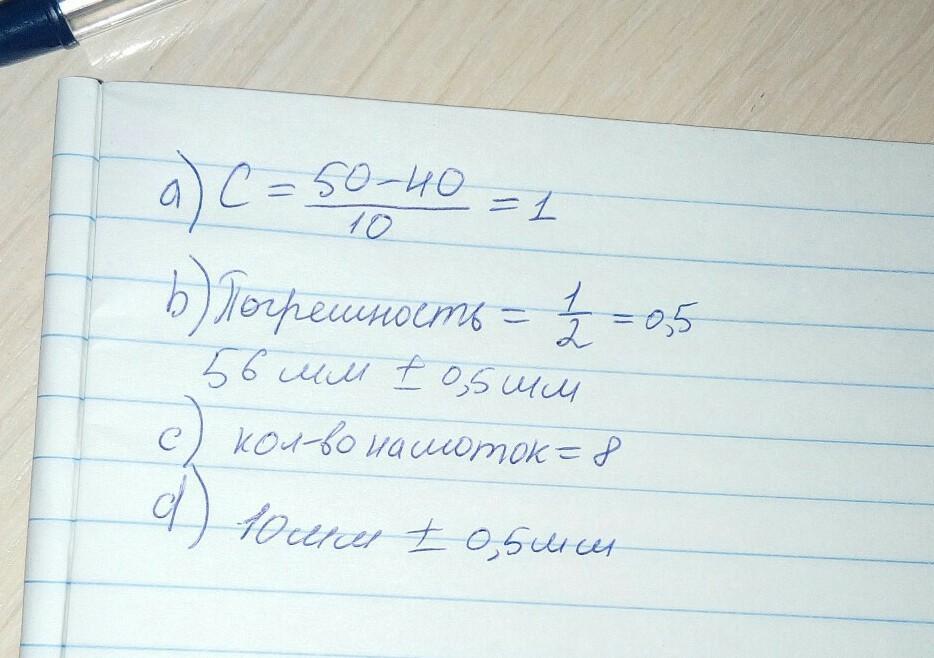 a) C = 50-40/10 = 1
b) Погрешность = 1/2 = 0,5
56 мм ± 0,5 мм
c) кол-во намоток = 8
d) 10мм ± 0,5мм